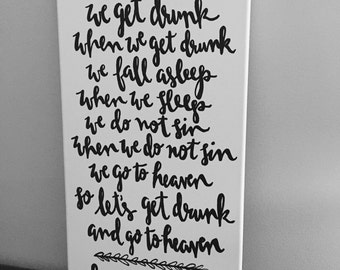 we get drunk
when we get drunk
we fall asleep
when we sleep
we do not sin
when we do not sin
we go to heaven
so let's get drunk
and go to heaven